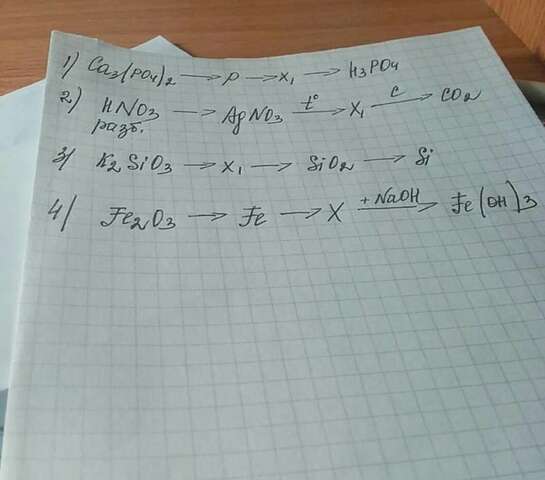 1) Ca3(PO4)2 → P → X1 → H3PO4
2) HNO3 → AgNO3 t° → X1 C → CO2
разб.
3) K2SiO3 → X1 → SiO2 → Si
4) Fe2O3 → Fe → X +NaOH → Fe(OH)3